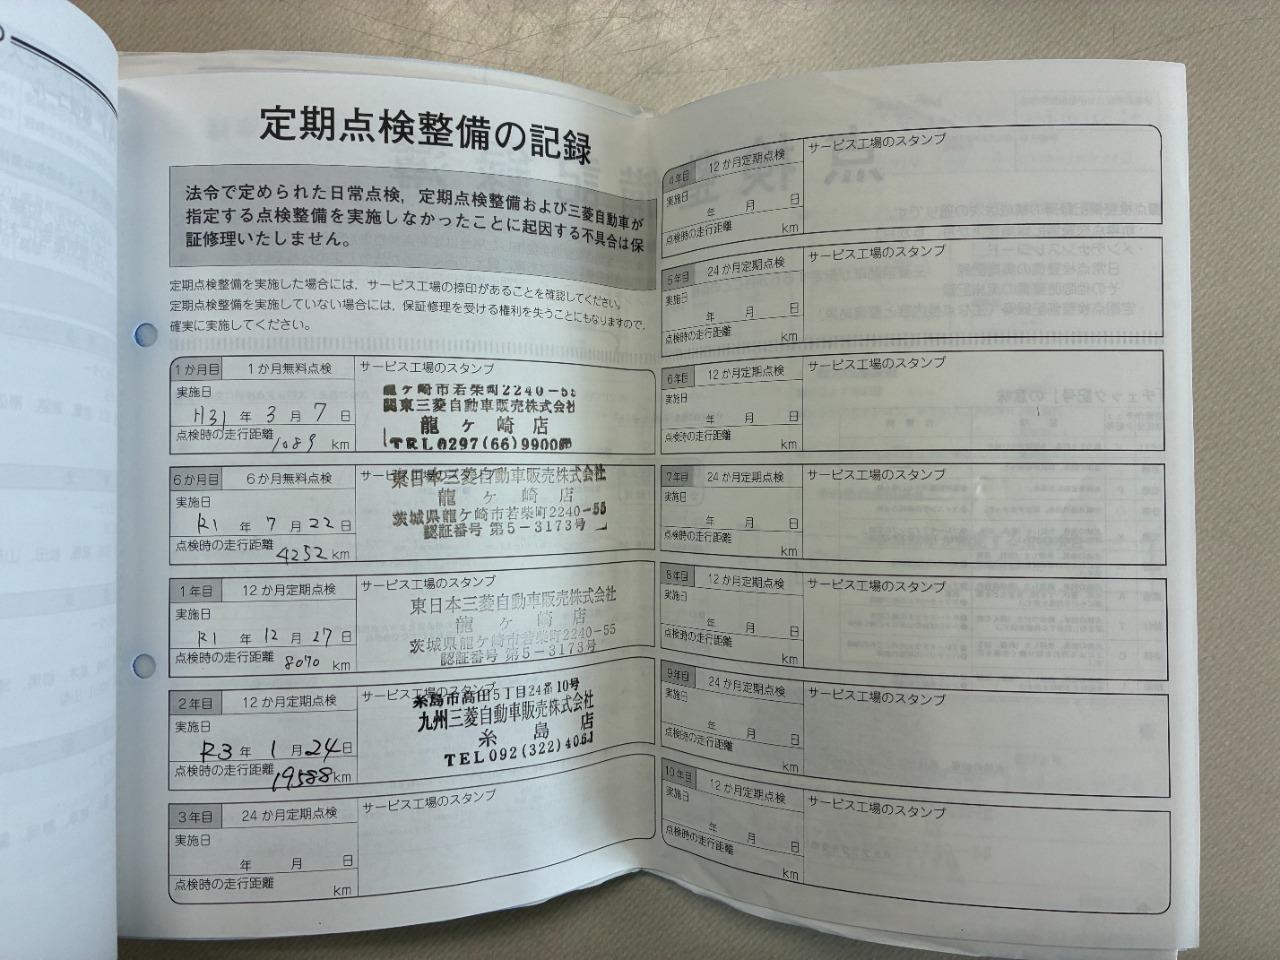 定期点検整備の記録
法令で定められた日常点検，定期点検整備および三菱自動車が
指定する点検整備を実施しなかったことに起因する不具合は保
証修理いたしません。
定期点検整備を実施した場合には，サービス工場の捺印があることを確認してください。
定期点検整備を実施していない場合には，保証修理を受ける権利を失うことにもなりますので，
確実に実施してください。
1か月目 1か月無料点検 サービス工場のスタンプ
実施日
H31 年 3 月 7 日
点検時の走行距離 1089 km
龍ヶ崎市若柴町2240-55
関東三菱自動車販売株式会社
龍ヶ崎店
TEL0297(66)9900
6か月目 6か月無料点検 サービス工場のスタンプ
実施日
R1 年 7 月 22 日
点検時の走行距離 4252 km
東日本三菱自動車販売株式会社
龍ヶ崎店
茨城県龍ケ崎市若柴町2240-55
認証番号 第5-3173号
1年目 12か月定期点検 サービス工場のスタンプ
実施日
R1 年 12 月 27 日
点検時の走行距離 8070 km
東日本三菱自動車販売株式会社
龍ヶ崎店
茨城県龍ケ崎市若柴町2240-55
認証番号 第5-3173号
2年目 12か月定期点検 サービス工場のスタンプ
実施日
R3 年 1 月 24 日
点検時の走行距離 19588 km
糸島市高田5丁目24番10号
九州三菱自動車販売株式会社
糸島店
TEL092(322)4061
3年目 24か月定期点検 サービス工場のスタンプ
実施日
年 月 日
点検時の走行距離 km
4年目 12か月定期点検 サービス工場のスタンプ
実施日
年 月 日
点検時の走行距離 km
5年目 24か月定期点検 サービス工場のスタンプ
実施日
年 月 日
点検時の走行距離 km
6年目 12か月定期点検 サービス工場のスタンプ
実施日
年 月 日
点検時の走行距離 km
7年目 24か月定期点検 サービス工場のスタンプ
実施日
年 月 日
点検時の走行距離 km
8年目 12か月定期点検 サービス工場のスタンプ
実施日
年 月 日
点検時の走行距離 km
9年目 24か月定期点検 サービス工場のスタンプ
実施日
年 月 日
点検時の走行距離 km
10年目 12か月定期点検 サービス工場のスタンプ
実施日
年 月 日
点検時の走行距離 km